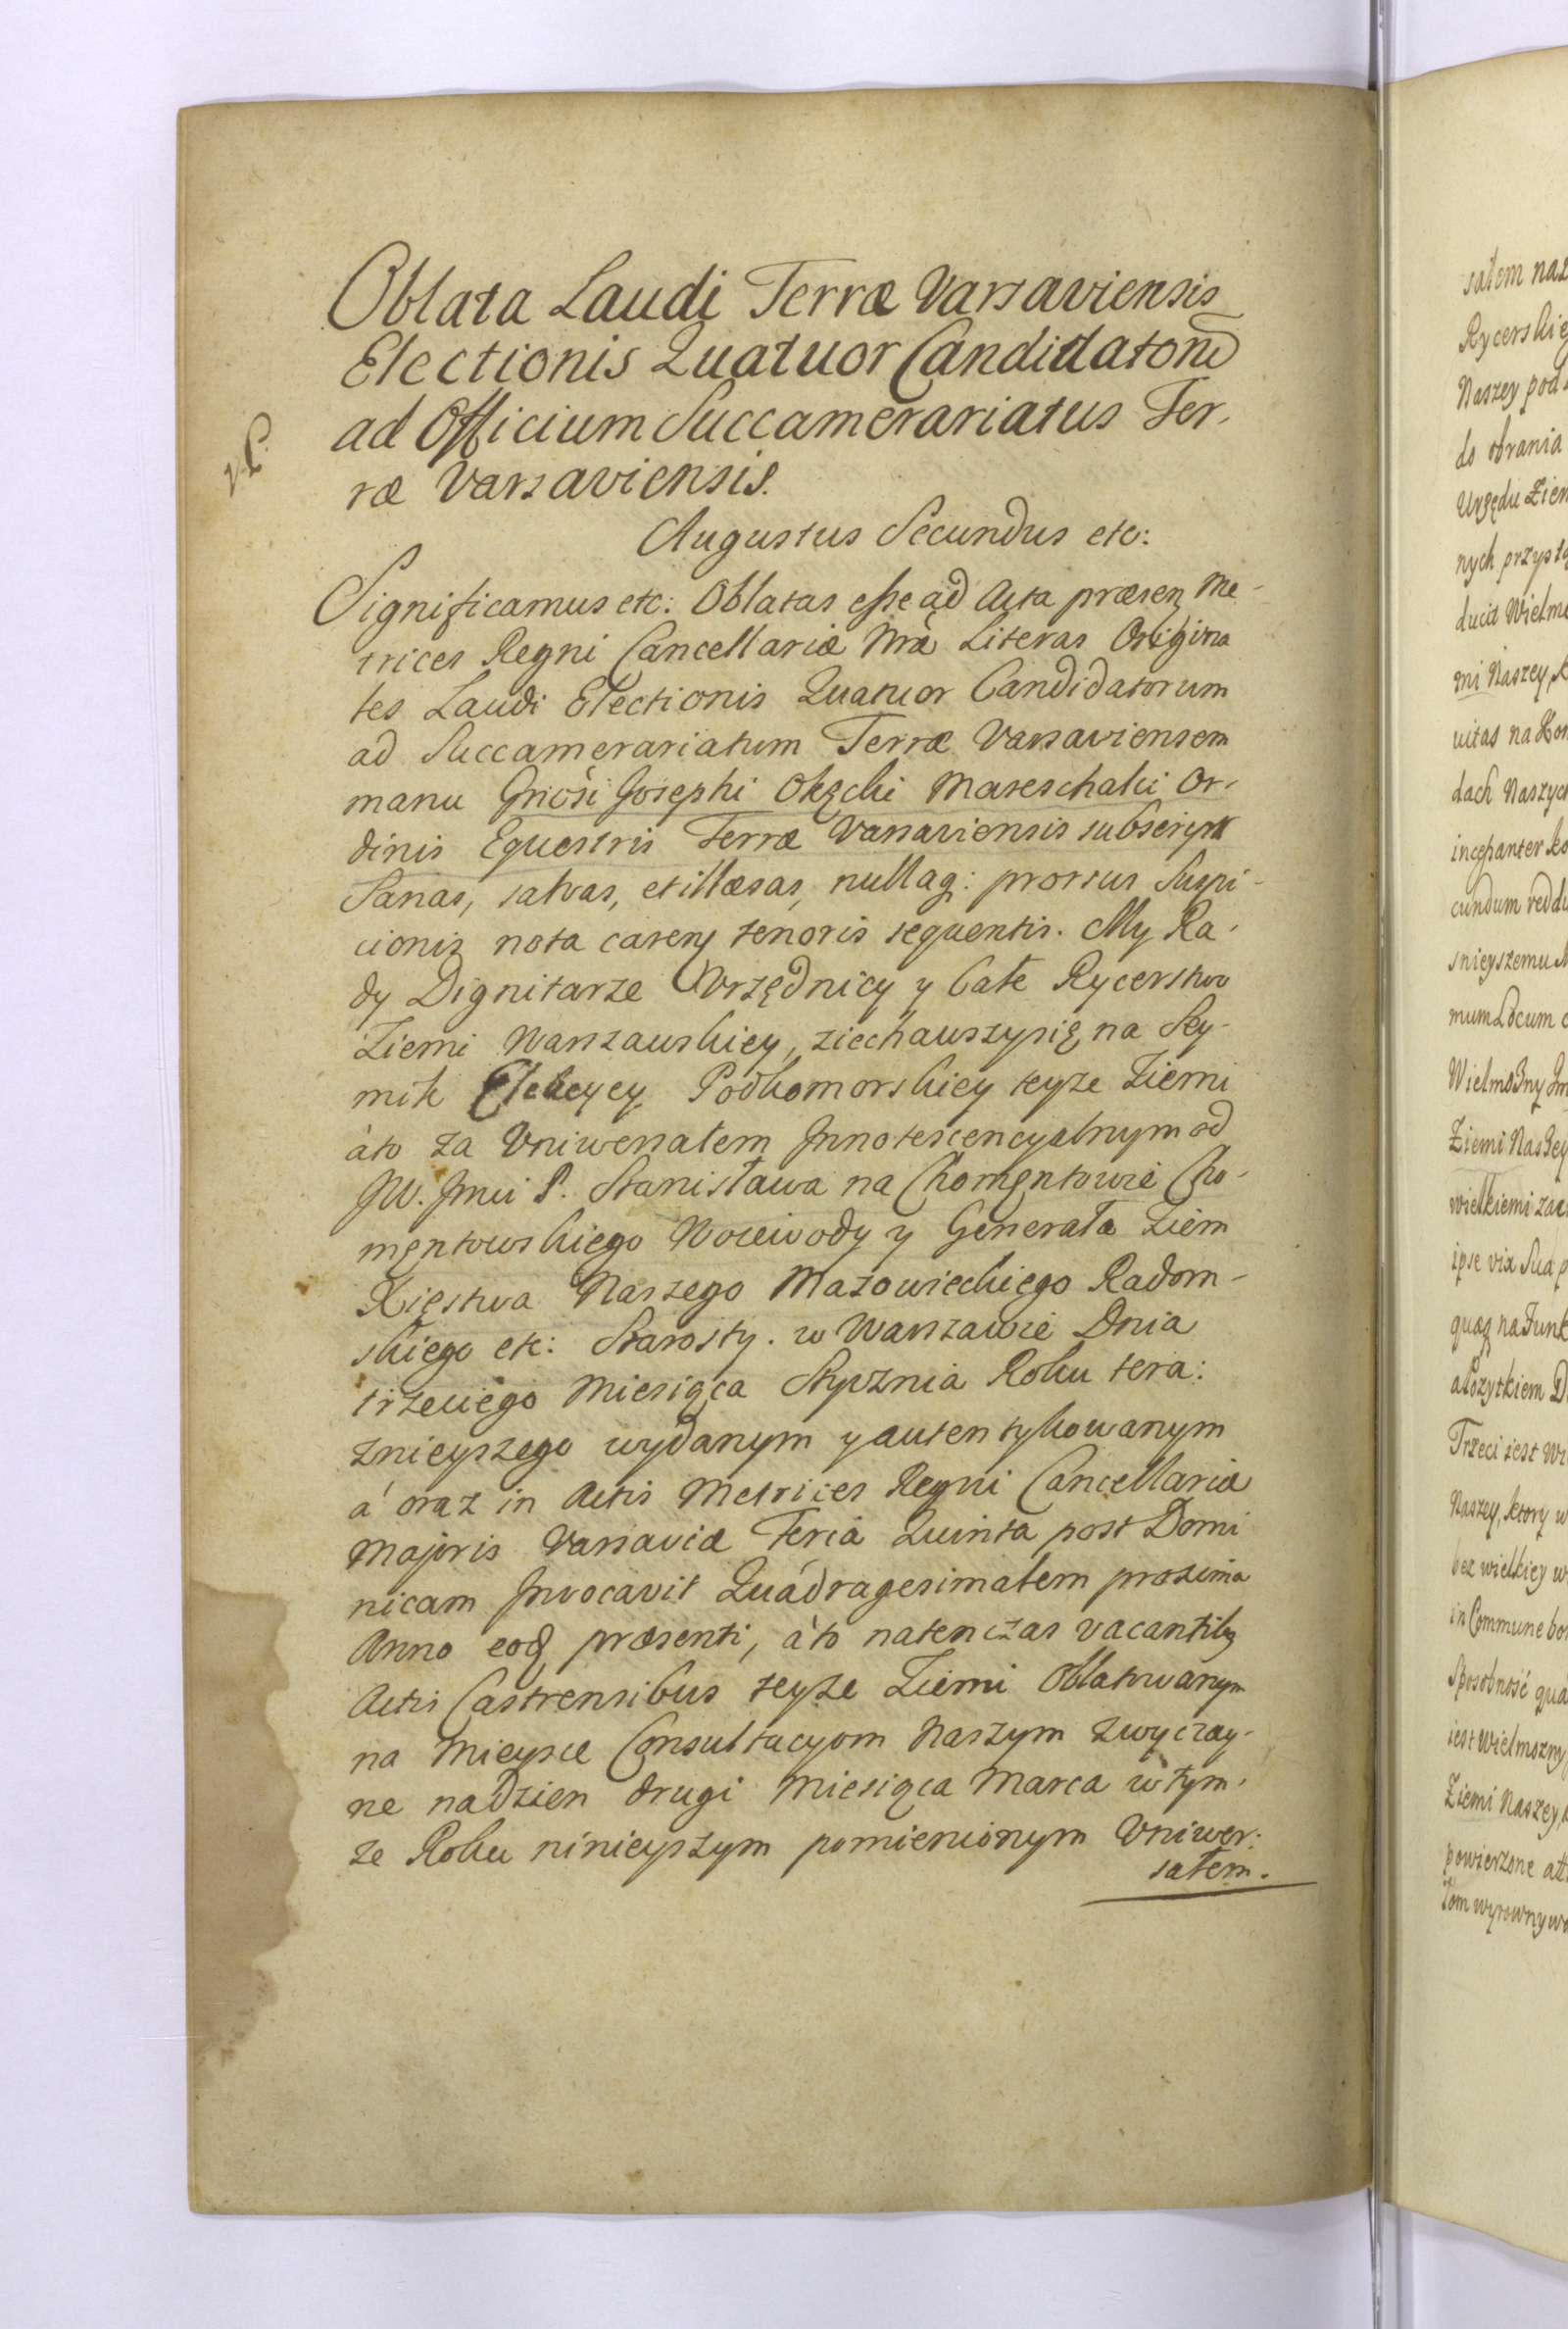 Oblata Laudi Terræ Varsaviensis
Electionis Quatuor Candidatorũ
ad Officium Succamerariatus Ter-
ræ Varsaviensis.
v.P.
Augustus Secundus etc:
Significamus etc: Oblatas esse ad Acta præsen. Me-
trices Regni Cancellariæ Nræ Literas Origina
les Laudi Electionis Quatuor Candidatorum
ad Succamerariatum Terræ Varsaviensem
manu Gnosi Josephi Okęcki Mareschalci Or-
dinis Equestris Terræ Varsaviensis subscript
Sanas, salvas, et illæsas, nullaq: prorsus Suspi-
cionis nota caren. tenoris sequentis. My Ra-
dy Dignitarze Vrzędnicy y Całe Rycerstwo
Ziemi Warszawskiey, ziechawszysię na Sey-
mik Elekcyey Podkomorskiey teyze Ziemi
áto za Vniwersałem Innotescencyalnym od
JW. Jmci P. Stanisława na Chomentowie Cho-
mentowskiego Woiewody y Generała Ziem
Xięstwa Naszego Mazowieckiego Radom-
skiego etc: Starosty. w Warszawie Dnia
trzeciego Miesiąca Stycznia Roku tera:
znieyszego wydanym y autentykowanym
á oraz in Actis Metrices Regni Cancellariæ
Majoris Varsaviæ Feria Quinta post Domi
nicam Invocavit Quádragesimalem proxima
Anno eod præsenti, áto natenczas vacantib9
Actis Castrensibus teyże Ziemi Oblatowanym
na Mieysce Consultacyom Naszym zwyczay-
ne nadzien drugi Miesiąca Marca w tym-
ze Roku ninieyszym pomienionym Vniwer:
sałem.
sałem naz
Rycerskie
Naszey pod
do obrania
Urzędu Ziem
nych przystą
ducit Wielmo
mi Naszey, k
uitas na Hon
dach Naszych
incessanter ko
cundum reddu
snieyszemu M
mum Locum o
Wielmożny Jm
Ziemi Naszey
wielkiemi zac
ipse vix sua p
quæ na Funk
a Pożytkiem D
Trzeci iest Wi
Naszey, ktory w
bez wielkiey w
in Commune bo
Sposobność qua
iest Wielmozny
Ziemi Naszey,
powierzone ad
tom wyrownywa